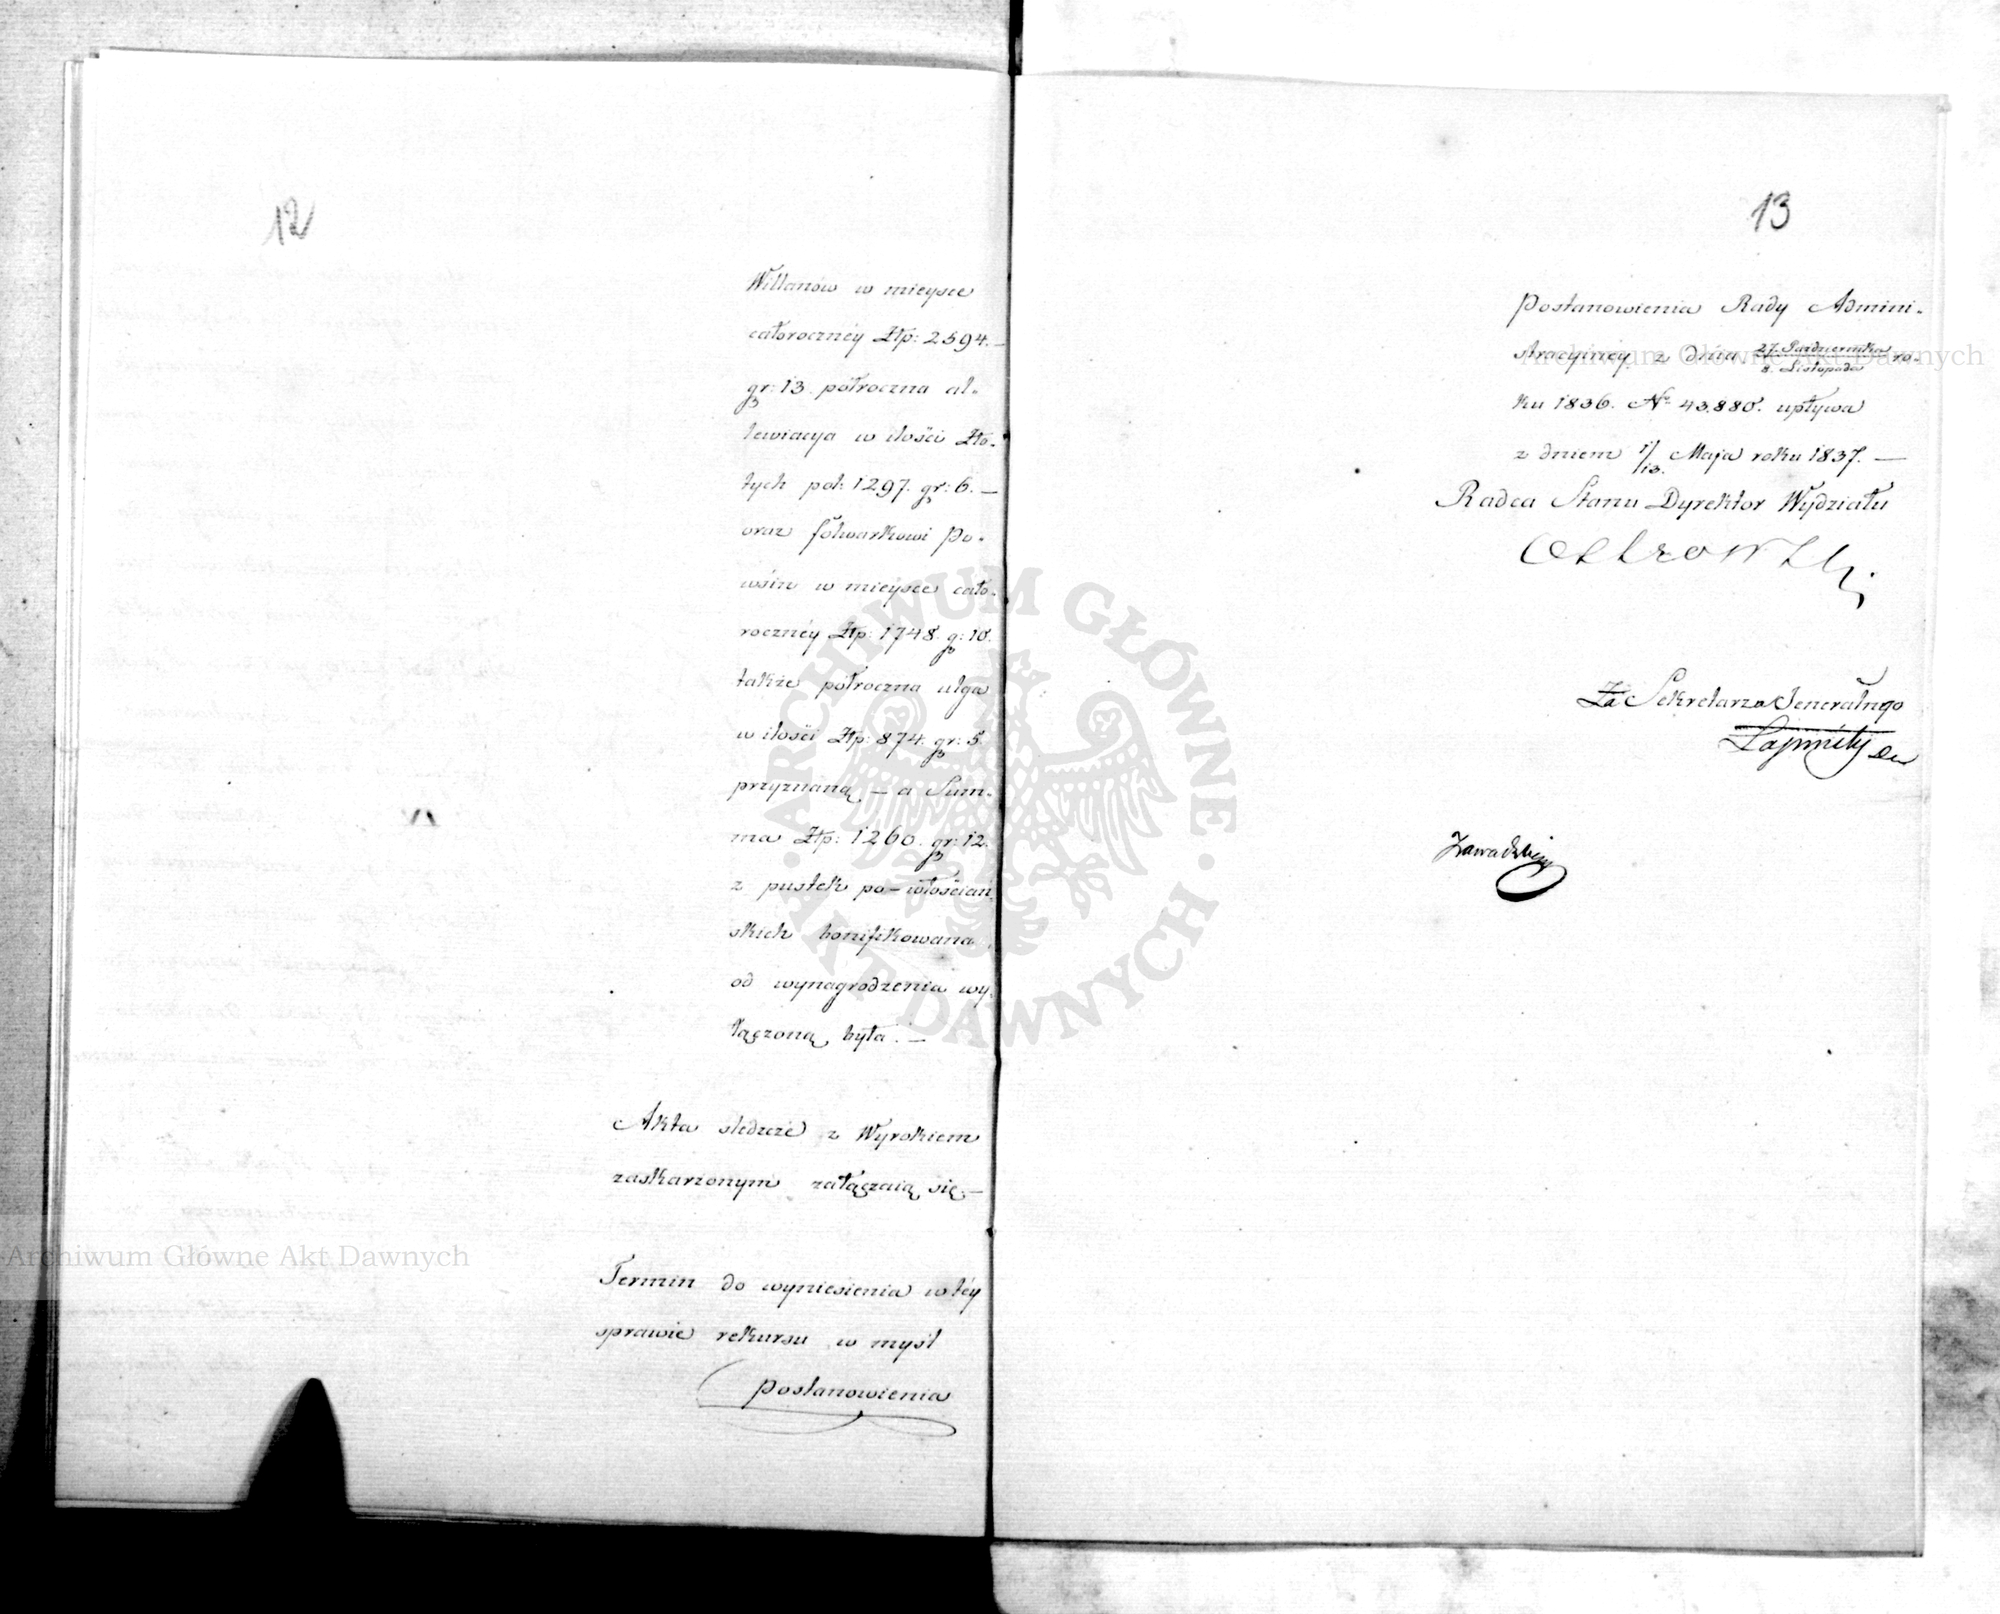 12
Willanów w mieysce
całorocznéy Złp: 2594. –
gr: 13. półroczna al-
lewiacya w ilości Zło-
tych pol: 1297. gr: 6. –
oraz folwarkowi Po-
wsin w mieysce cało-
rocznéy Złp: 1748. g: 10.
także półroczna ulga
w ilości Złp: 874. gr: 5.
przyznaną – a Sum-
ma Złp: 1260. gr: 12.
z pustek po-włościań
skich bonifikowana
od wynagrodzenia wy-
łączoną była. –
Akta śledzcze z Wyrokiem
zaskarżonym załączaią się. –
Termin do wyniesienia w téy
sprawie rekursu w myśl
Postanowienia
13
Postanowienia Rady Admini-
stracyiney z dnia 27. Października
8. Listopada ro-
ku 1836. Nr 43.880. upływa
z dniem 1/13. Maja roku 1837. –
Radca Stanu Dyrektor Wydziału
Za Sekretarza Jeneralnego
ARCHIWUM GŁÓWNE AKT DAWNYCH
Archiwum Główne Akt Dawnych
Archiwum Główne Akt Dawnych